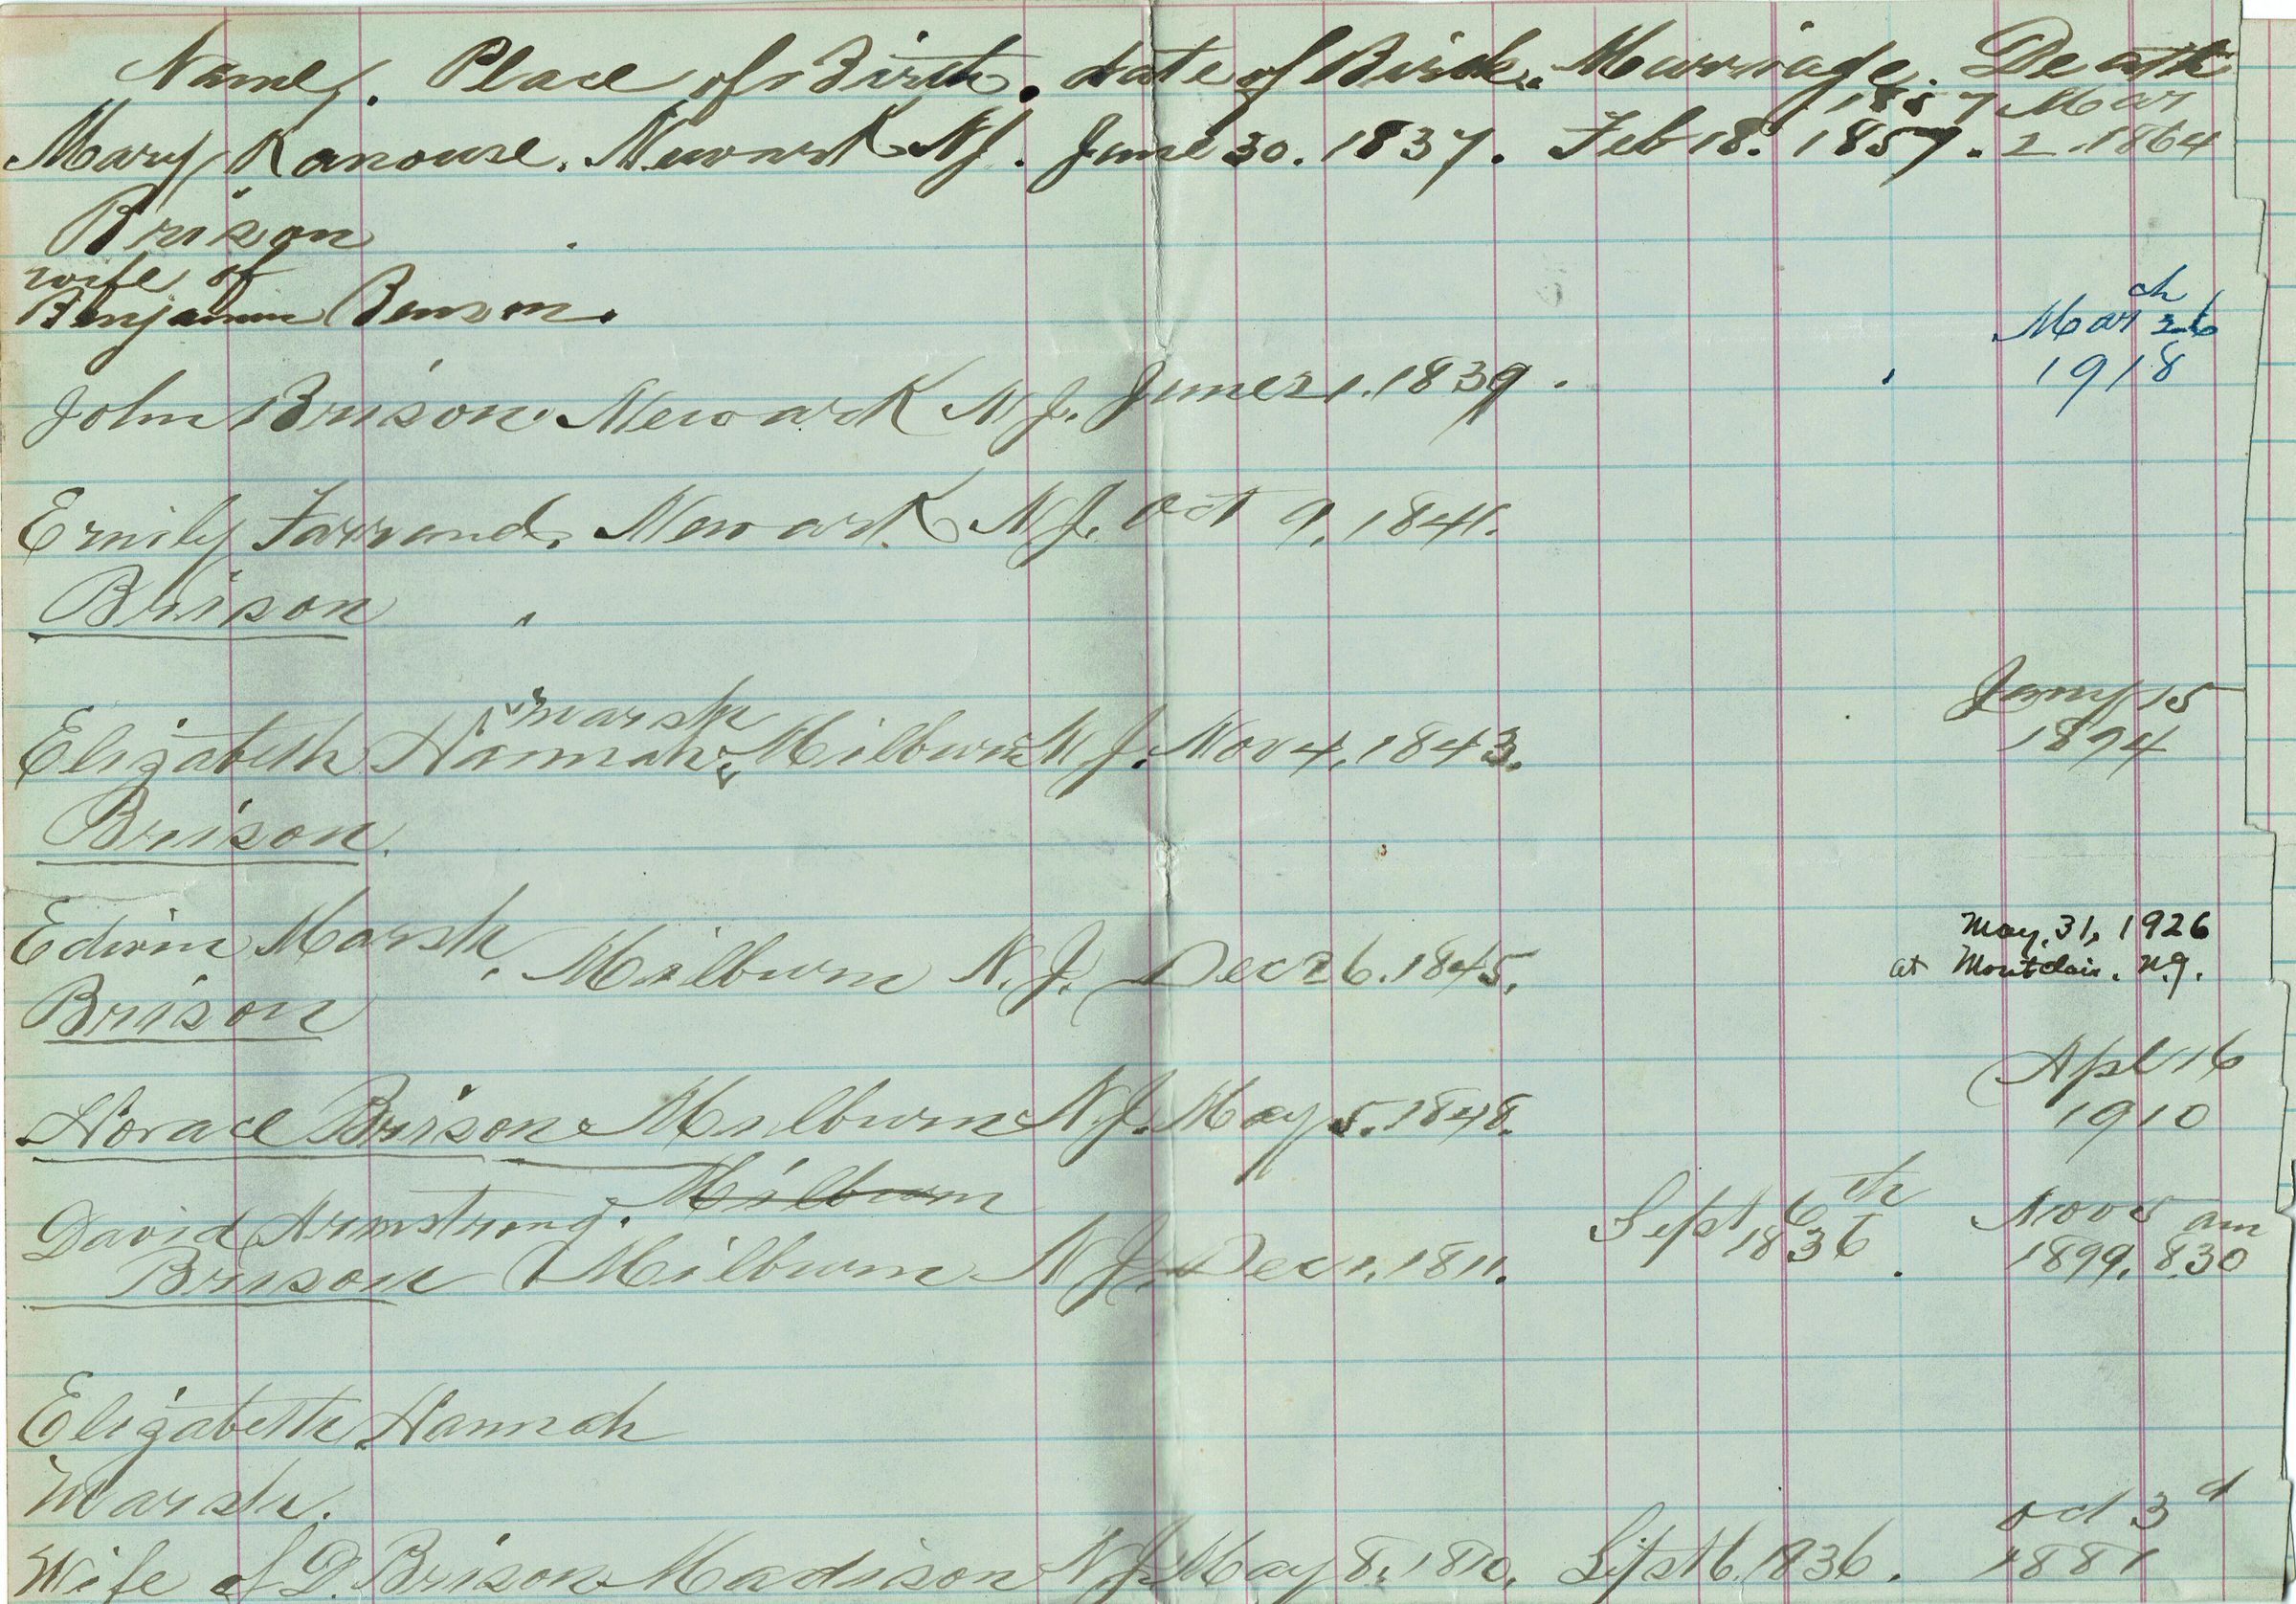 Name. Place of Birth. date of Birth. Marriage. Death
1857 Mar
Mary Kanouse. Newark NJ. June 30. 1837. Feb 18. 1857. 2. 1864
Brison
wife of
Benjamin Benson.
March 26
1918
John Brison. Newark N.J. June 21. 1839.
Emily Farrand. Newark N.J. Oct 9. 1841.
Brison
Jany 15
1894
marsh
Elizabeth Hannah. Milburn N J. Nov 4. 1843.
Brison.
Edwin Marsh. Milburn N.J. Dec 26. 1845.
May, 31, 1926
at Montclair. N.J.
Brison
Apl 16
1910
Horace Brison Milburn N.J. May 5. 1848.
Milburn
David Armstrong. Sept 6th Nov 5 am
Brison Milburn N J. Dec 1. 1811. 1836. 1899. 8.30
Elizabeth Hannah
Marsh.
oct 3d
Wife of D. Brison Madison N J. May 8. 1810. Sept 6. 1836. 1881